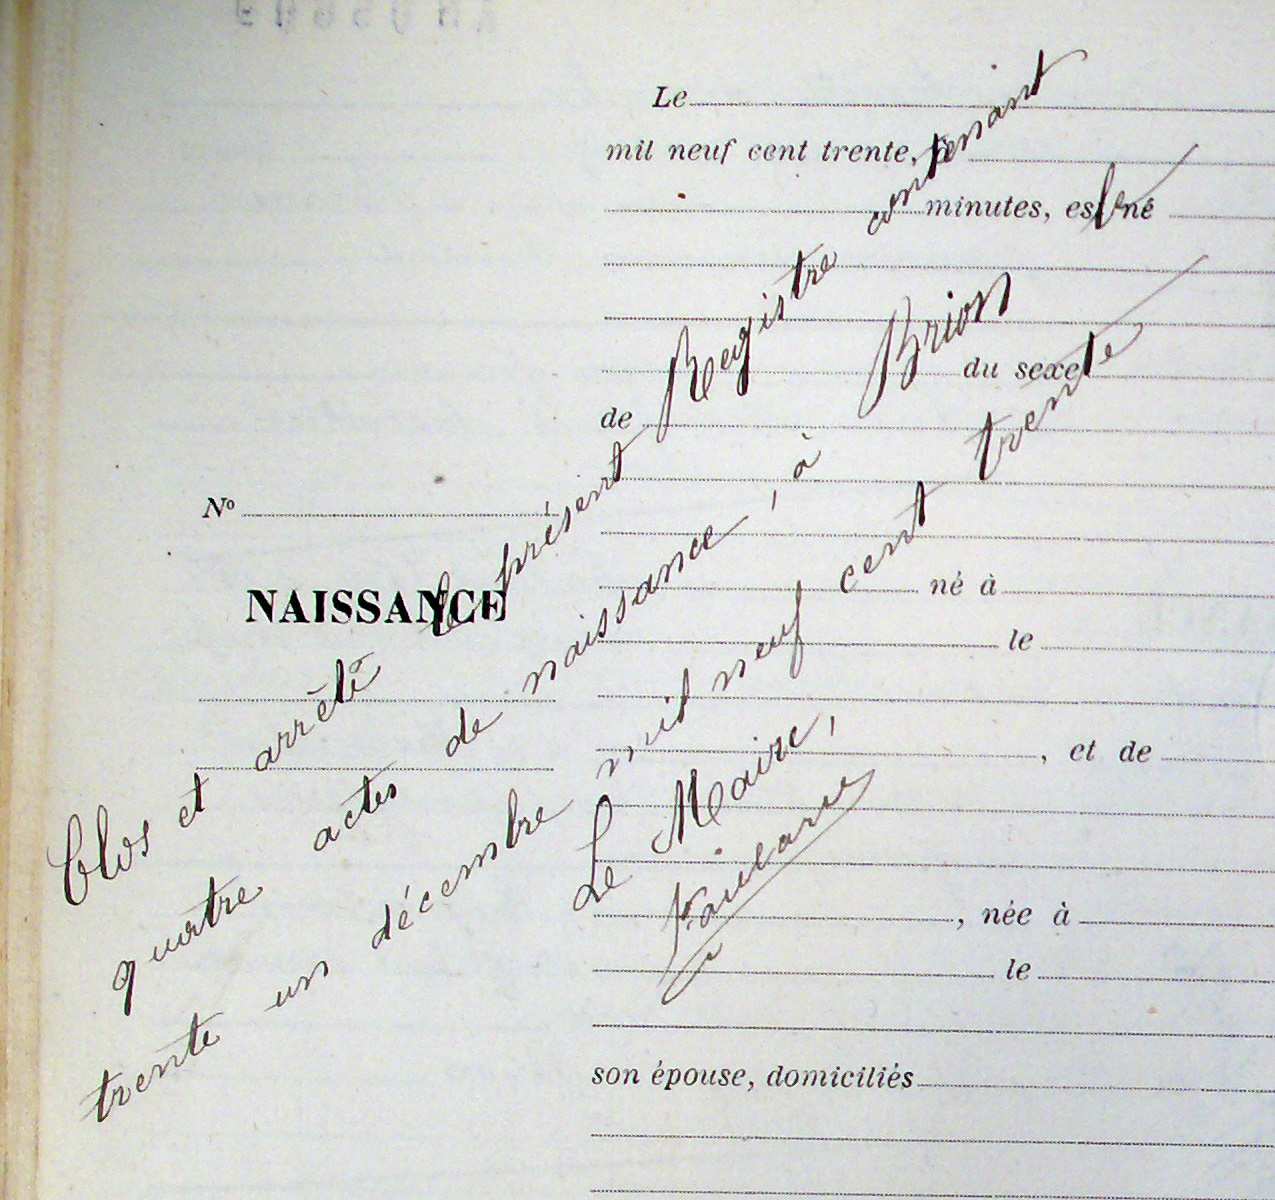 Le
mil neuf cent trente,
minutes, est né
du sexe
de
Nº
né à
NAISSANCE
le
, et de
, née à
le
son épouse, domiciliés
Clos et arrêté le présent Registre contenant
quatre actes de naissance, à Brion le
trente un décembre mil neuf cent trente
Le Maire,